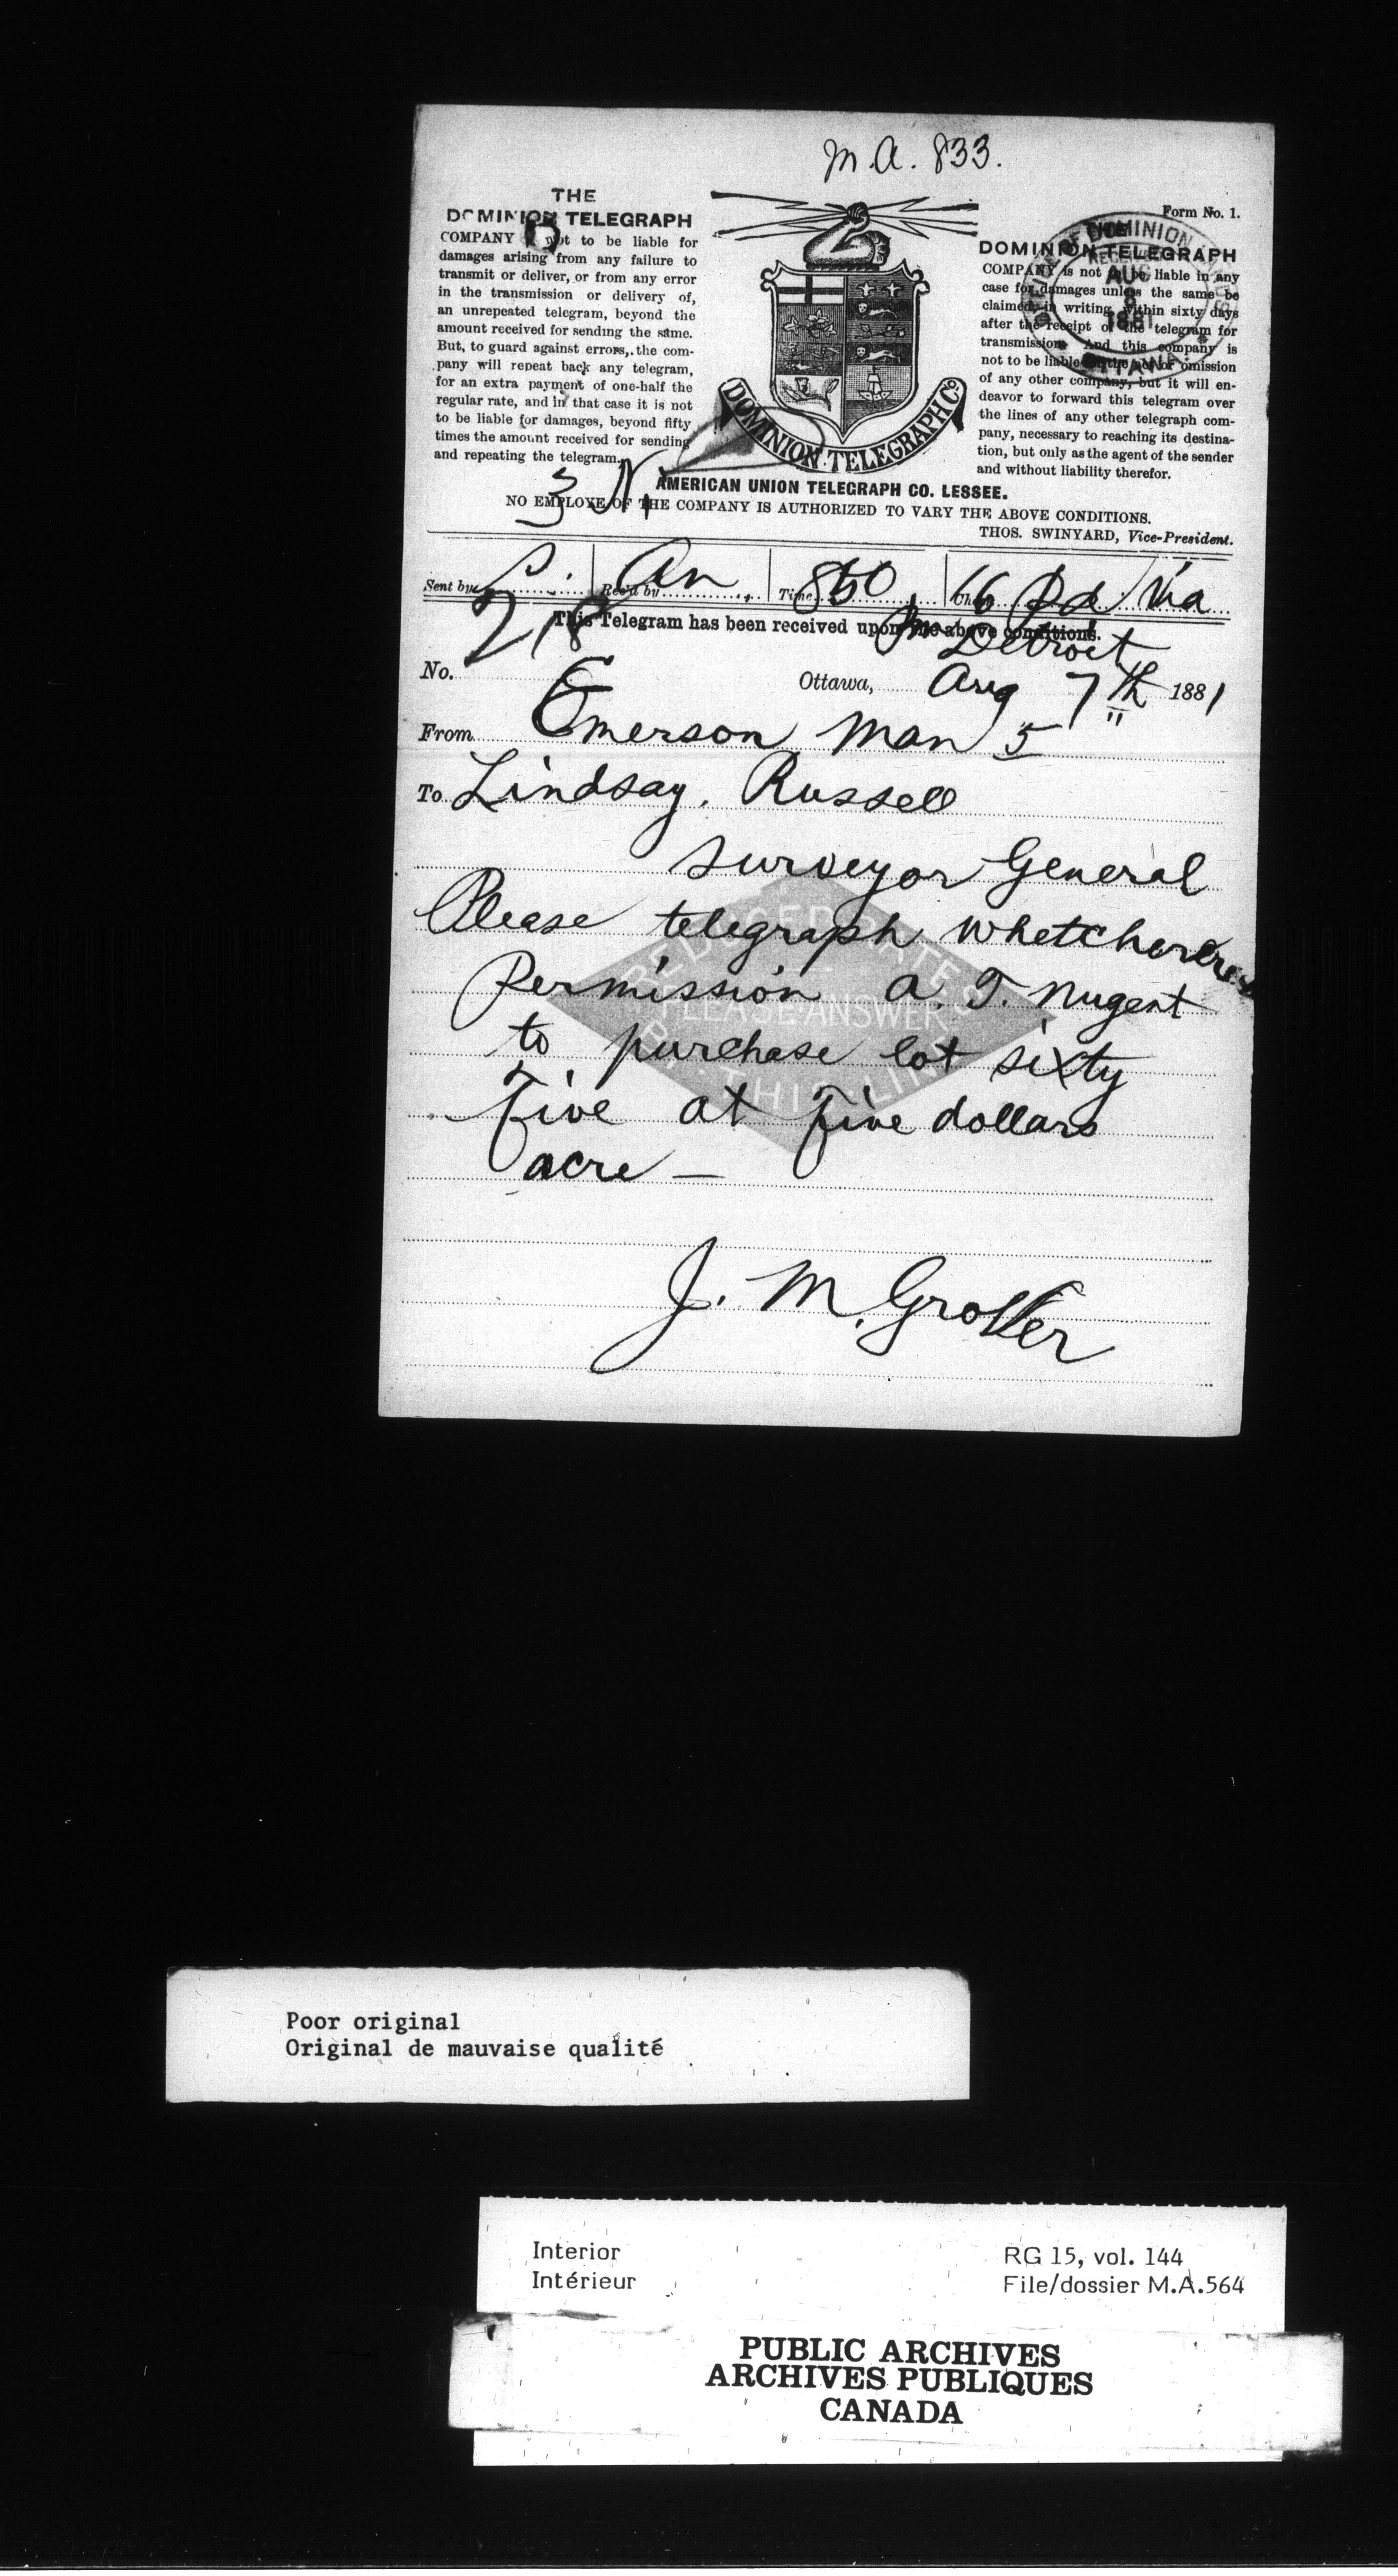 M.A. 833.
THE
DOMINION TELEGRAPH
COMPANY not to be liable for
damages arising from any failure to
transmit or deliver, or from any error
in the transmission or delivery of,
an unrepeated telegram, beyond the
amount received for sending the same.
But, to guard against errors, the com-
pany will repeat back any telegram,
for an extra payment of one-half the
regular rate, and in that case it is not
to be liable for damages, beyond fifty
times the amount received for sending
and repeating the telegram.
DOMINION TELEGRAPH Co.
Form No. 1.
DOMINION TELEGRAPH
COMPANY is not to be liable in any
case for damages unless the same be
claimed in writing within sixty days
after the receipt of the telegram for
transmission. And this company is
not to be liable omission
of any other company, but it will en-
deavor to forward this telegram over
the lines of any other telegraph com-
pany, necessary to reaching its destina-
tion, but only as the agent of the sender
and without liability therefor.
DOMINION
AUG
8
1881
OTTAWA
AMERICAN UNION TELEGRAPH CO. LESSEE.
3 N
NO EMPLOYE OF THE COMPANY IS AUTHORIZED TO VARY THE ABOVE CONDITIONS.
THOS. SWINYARD, Vice-President.
Sent by Rec'd by An Time 850 Ch 16 Pd Via
This Telegram has been received upon the above conditions.
Detroit
No. 218 Ottawa, Aug 7th 1881
From Emerson Man 5
To Lindsay, Russell
Surveyor General
Please telegraph whetcher
Permission A. T. Nugent
to purchase lot sixty
five at five dollars
acre —
REDUCED RATES
PLEASE ANSWER
BY THIS LINE
J. M. Grover
Poor original
Original de mauvaise qualité
Interior
Intérieur
RG 15, vol. 144
File/dossier M.A.564
PUBLIC ARCHIVES
ARCHIVES PUBLIQUES
CANADA